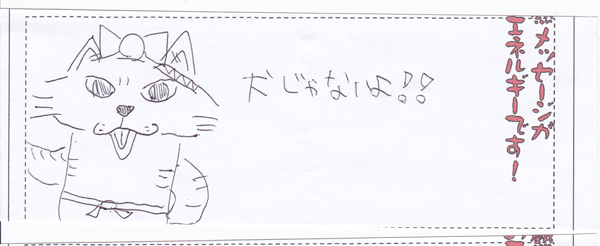 メッセージが
エネルギーです!
犬じゃないよ!!